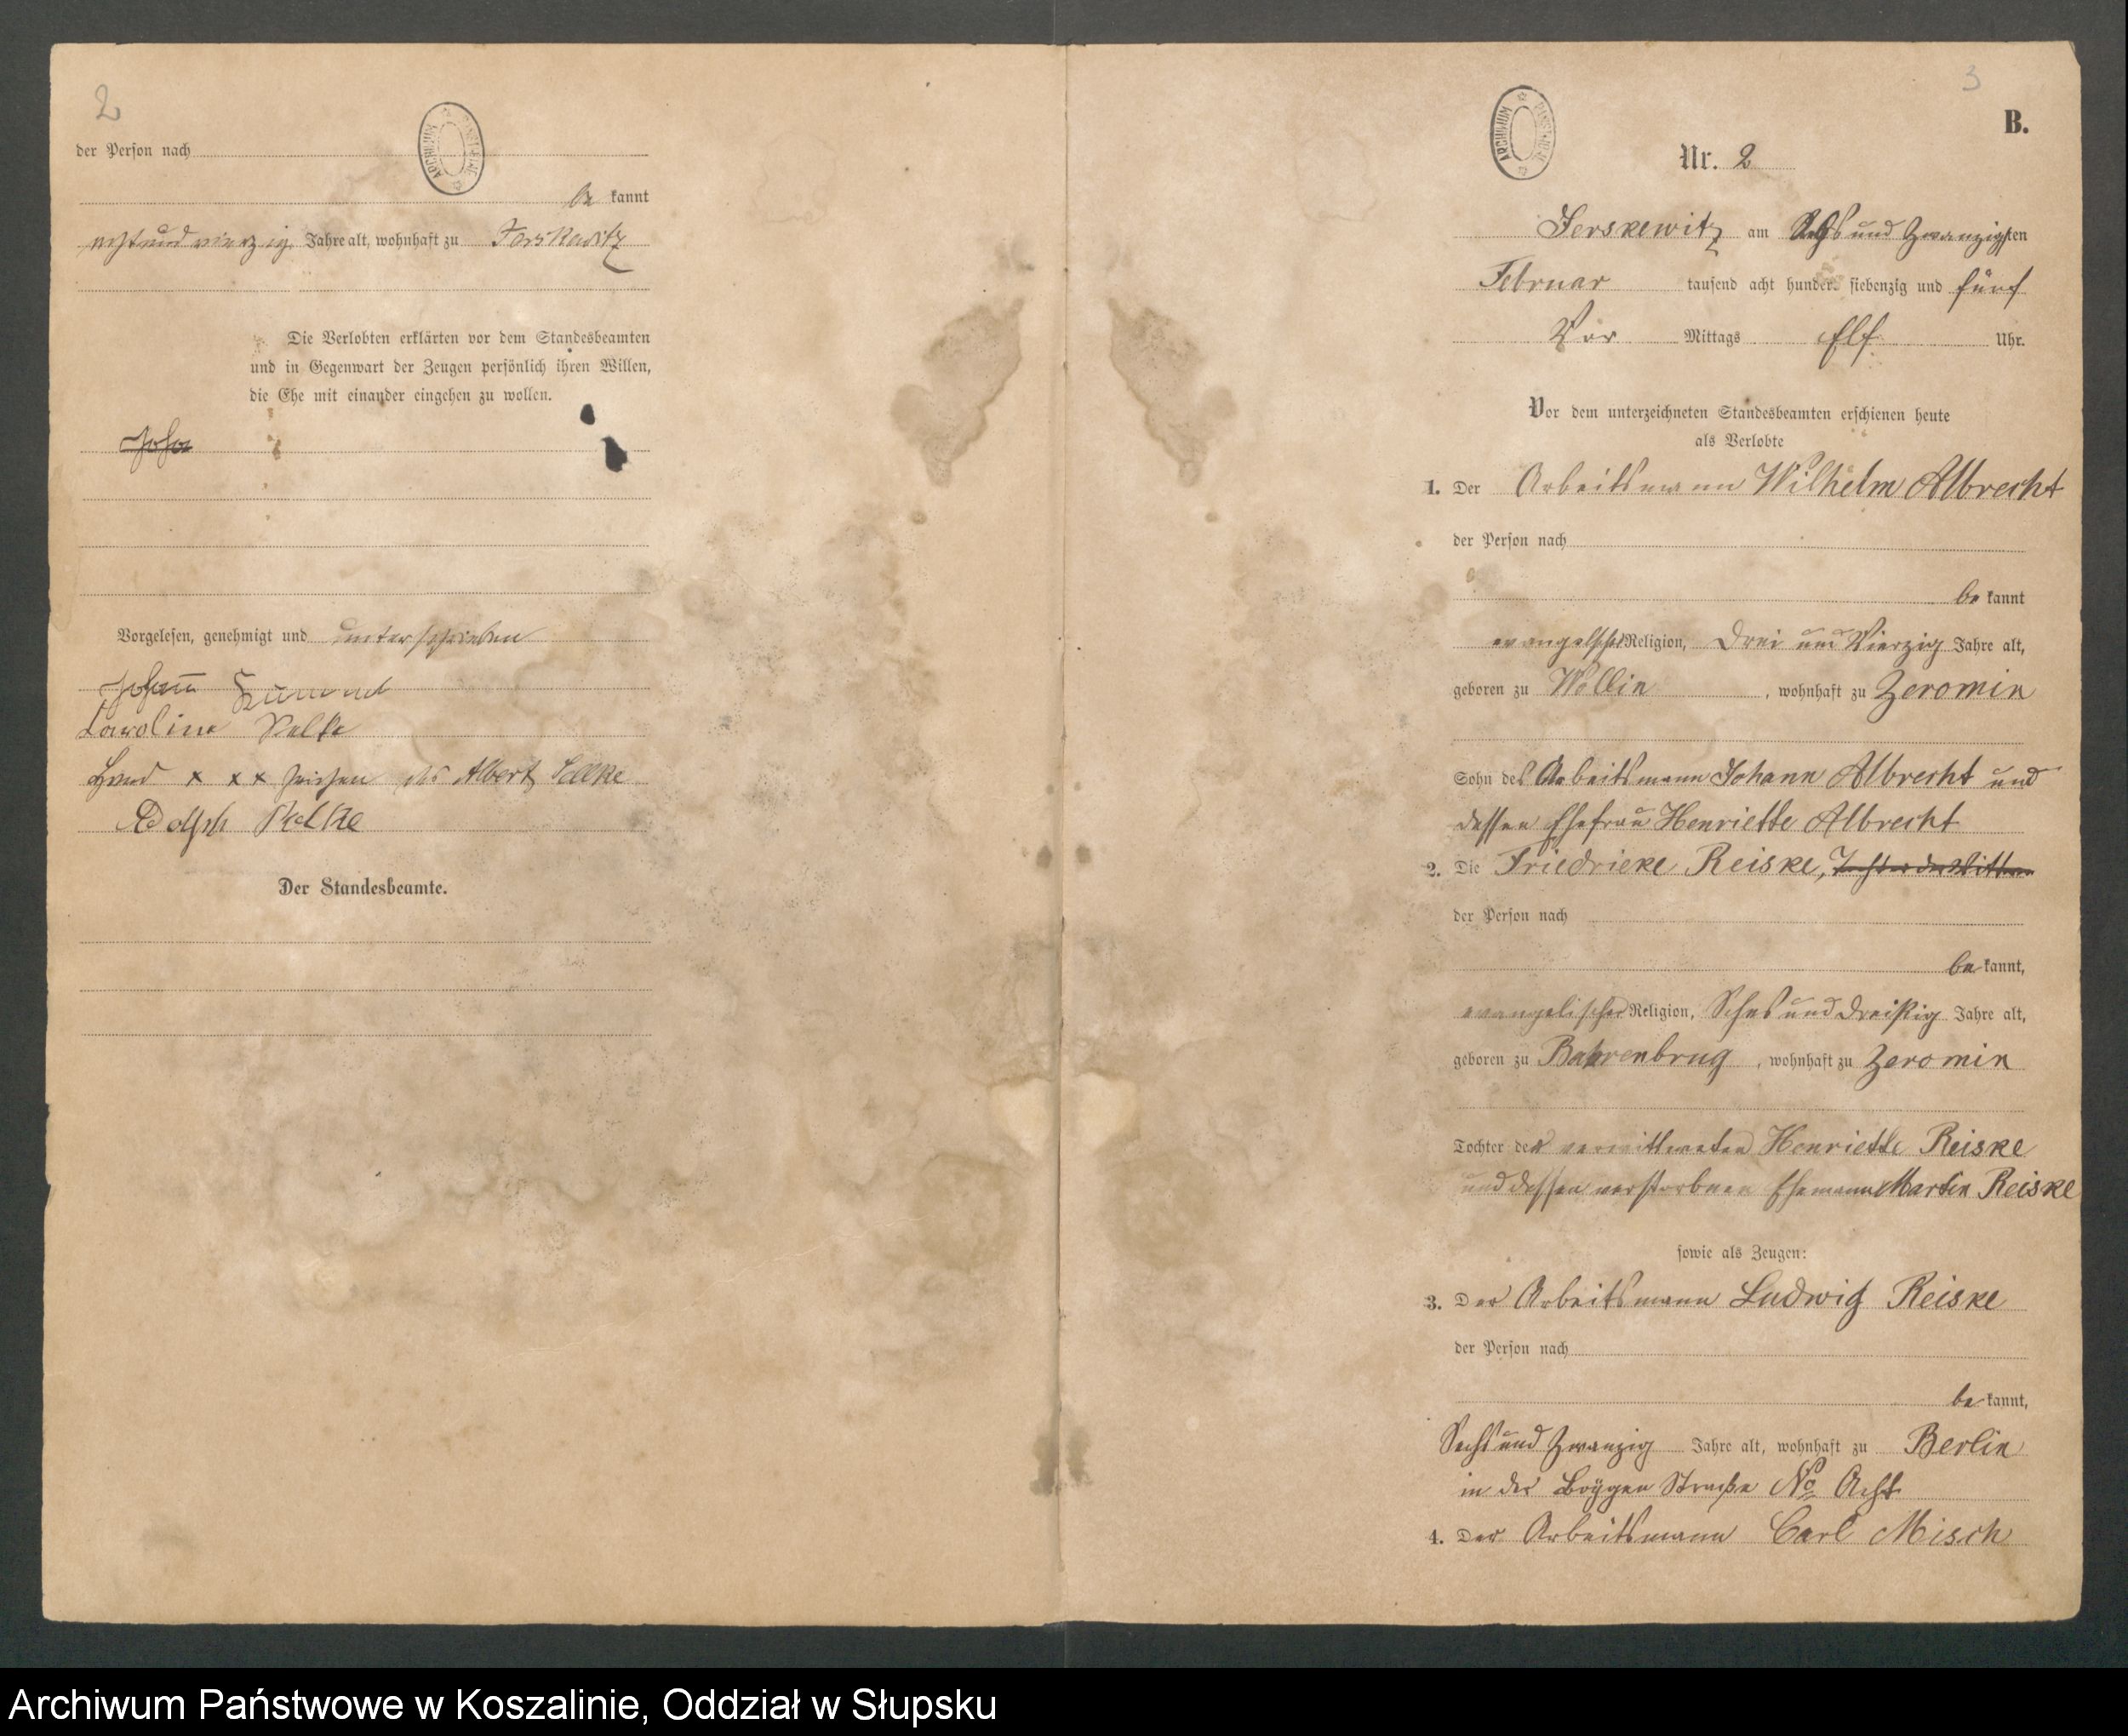 2
ARCHIWUM PAŃSTWOWE
der Person nach
be kannt
acht und vierzig Jahre alt, wohnhaft zu Jerskewitz
Die Verlobten erklärten vor dem Standesbeamten
und in Gegenwart der Zeugen persönlich ihren Willen,
die Ehe mit einander eingehen zu wollen.
Joha
Vorgelesen, genehmigt und unterschrieben
Johann
Caroline Selke
Hand x x x zeichen des Albert Sellke
Adolph Selke
Der Standesbeamte.
3
B.
ARCHIWUM PAŃSTWOWE
Nr. 2
Jerskewitz am Sechs und Zwanzigsten
Februar tausend acht hundert siebenzig und fünf
Vor Mittags Elf Uhr.
Vor dem unterzeichneten Standesbeamten erschienen heute
als Verlobte
1. Der Arbeitsmann Wilhelm Albrecht
der Person nach
be kannt
evangelscher Religion, Drei und Vierzig Jahre alt,
geboren zu Wollin, wohnhaft zu Zeromin
Sohn des Arbeitsmann Johann Albrecht und
dessen Ehefrau Henriette Albrecht
2. Die Friedrieke Reiske, Tochter der Wittwe
der Person nach
be kannt,
evangelischer Religion, Sechs und Dreißig Jahre alt,
geboren zu Bahrenbrug, wohnhaft zu Zeromin
Tochter der verwittweten Henriette Reiske
und dessen verstorbnen Ehemann Martin Reiske
sowie als Zeugen:
3. Der Arbeitsmann Ludwig Reiske
der Person nach
be kannt,
Sechs und Zwanzig Jahre alt, wohnhaft zu Berlin
in der Straße No Acht
4. Der Arbeitsmann Carl Misch
Archiwum Państwowe w Koszalinie, Oddział w Słupsku